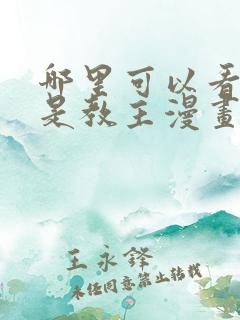 哪里可以看
是教主漫畫
王永鋒
未经同意禁止转载